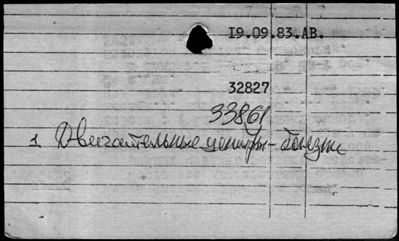 I9.09.83.АВ.
32827
33861
1. Двигательные центры - болезни